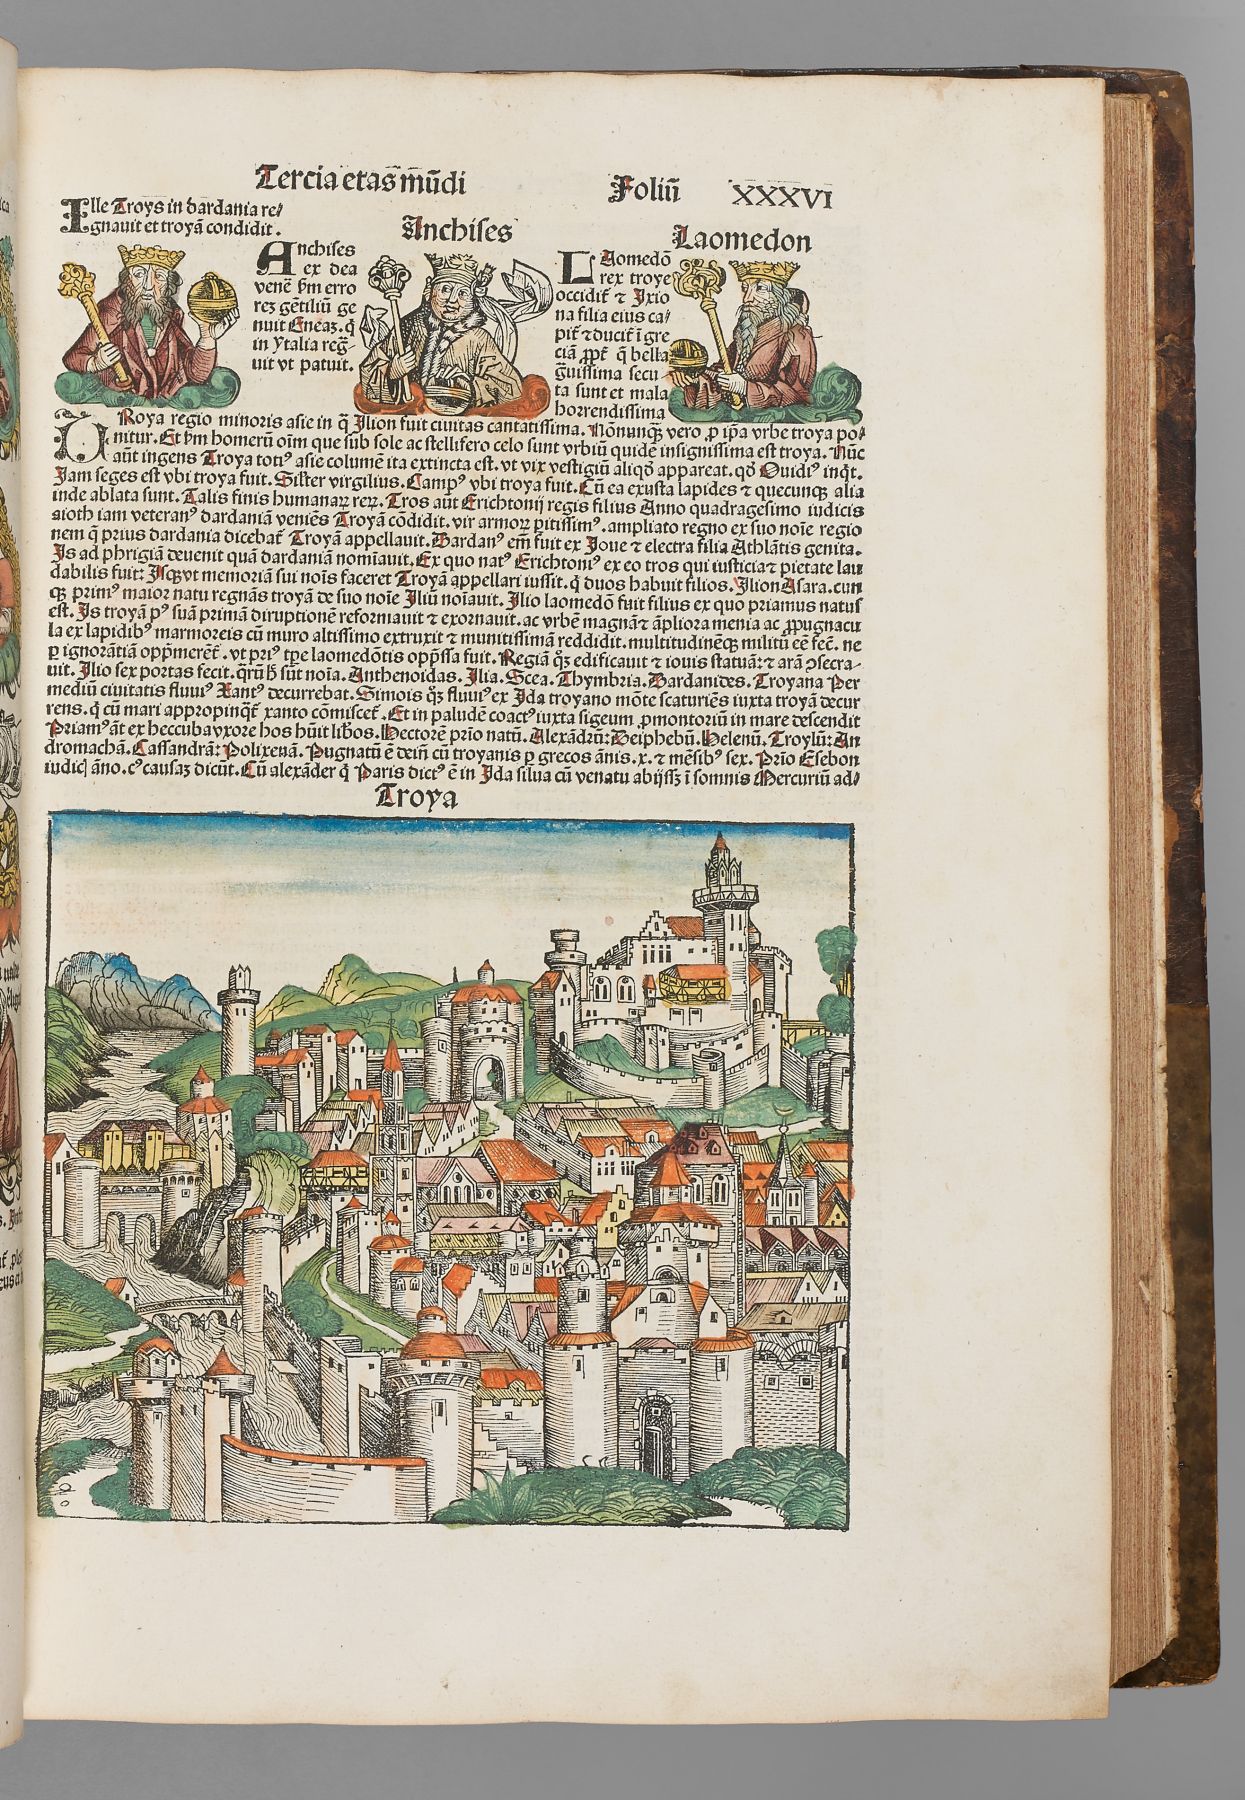 Tercia etas mūdi Foliū XXXVI
Ille Troys in dardania re/
gnauit et troyā condidit.
Anchises
Anchises
ex dea
venē ẜm erro
reꝫ gētiliū ge
nuit Eneaꝫ. q̄
in ytalia reḡ-
uit vt patuit.
Laomedon
LAomedō
rex troye
occidit̄ ⁊ Ixio
na filia eius ca/
pit̄ ⁊ ducit̄ ī gre
ciā ꝓpt̄ q̄ bella
ḡuissima secu
ta sunt et mala
horrendissima
TRoya regio minoris asie in q̄ Ilion fuit ciuitas cantatissima. Nōnunqꝫ vero ꝓ ip̄a vrbe troya po/
nitur. Et ẜm homerū oīm que sub sole ac stellifero celo sunt vrbiū quidē insignissima est troya. Nūc
aūt ingens Troya totꝰ asie columē ita extincta est. vt vix vestigiū aliqḋ appareat. qḋ Ouidiꝰ inq̄t.
Iam seges est vbi troya fuit. Silr̄ter virgilius. Campꝰ vbi troya fuit. Cū ea exusta lapides ⁊ quecunqꝫ alia
inde ablata sunt. Talis finis humanaꝝ reꝝ. Tros aūt Erichtonij regis filius Anno quadragesimo iudicis
aioth iam veteranꝰ dardaniā veniēs Troyā cōdidit. vir armoꝝ ꝑitissimꝰ. ampliato regno ex suo noīe regio
nem q̄ prius dardania dicebat̄ Troyā appellauit. Dardanꝰ em̄ fuit ex Ioue ⁊ electra filia Athlātis genita.
Is ad phrigiā deuenit quā dardaniā nomīauit. Ex quo natꝰ Erichtoniꝰ ex eo tros qui iusticia ⁊ pietate lau
dabilis fuit: Isqꝫ vt memoriā sui noīs faceret Troyā appellari iussit. q̄ duos habuit filios. Ilion Asara. cun
qꝫ primꝰ maior natu regnās troyā de suo noīe Iliū noīauit. Ilio laomedō fuit filius ex quo priamus natus
est. Is troyā pꝰ suā primā diruptionē reformauit ⁊ exornauit. ac vrbē magnā ⁊ āpliora menia ac ꝓpugnacu
la ex lapidibꝰ marmoreis cū muro altissimo extruxit ⁊ munitissimā reddidit. multitudinēqꝫ militū eē fec̄t. ne
ꝑ ignorātiā opp̄merēt̄. vt pri ꝰ tꝑe laomedōtis opp̄ssa fuit. Regiā qꝫ edificauit ⁊ iouis statuā: ⁊ arā ꝯsecra-
uit. Ilio sex portas fecit. q̄rū h̄ sūt noīa. Anthenoidas. Ilia. Scea. Thymbria. Dardanides. Troyana Per
mediū ciuitatis fluuiꝰ Xantꝰ decurrebat. Simois qꝫ fluuiꝰ ex Ida troyano mōte scaturiēs iuxta troyā decur
rens. q̄ cū mari appropinq̄t̄ xanto cōmiscet̄. Et in paludē coactꝰ iuxta sigeum ꝓmontoriū in mare descendit
Priamꝰ āt̄ ex heccuba vxore hos hūit libros. Hectorē prīo natū. Alexādrū: Deiphebū. Helenū. Troylū: An
dromachā. Cassandrā: Polixenā. Pugnatū ē dein̄ cū troyanis ꝑ grecos ānis. x. ⁊ mēsibꝰ sex. Prīo Esebon
iudicꝭ āno. cꝰ causaꝫ dicūt. Cū alexāder q̄ Paris dictꝰ ē in Ida silua cū venatu abijssꝫ ī somnis Mercuriū ad/
Troya